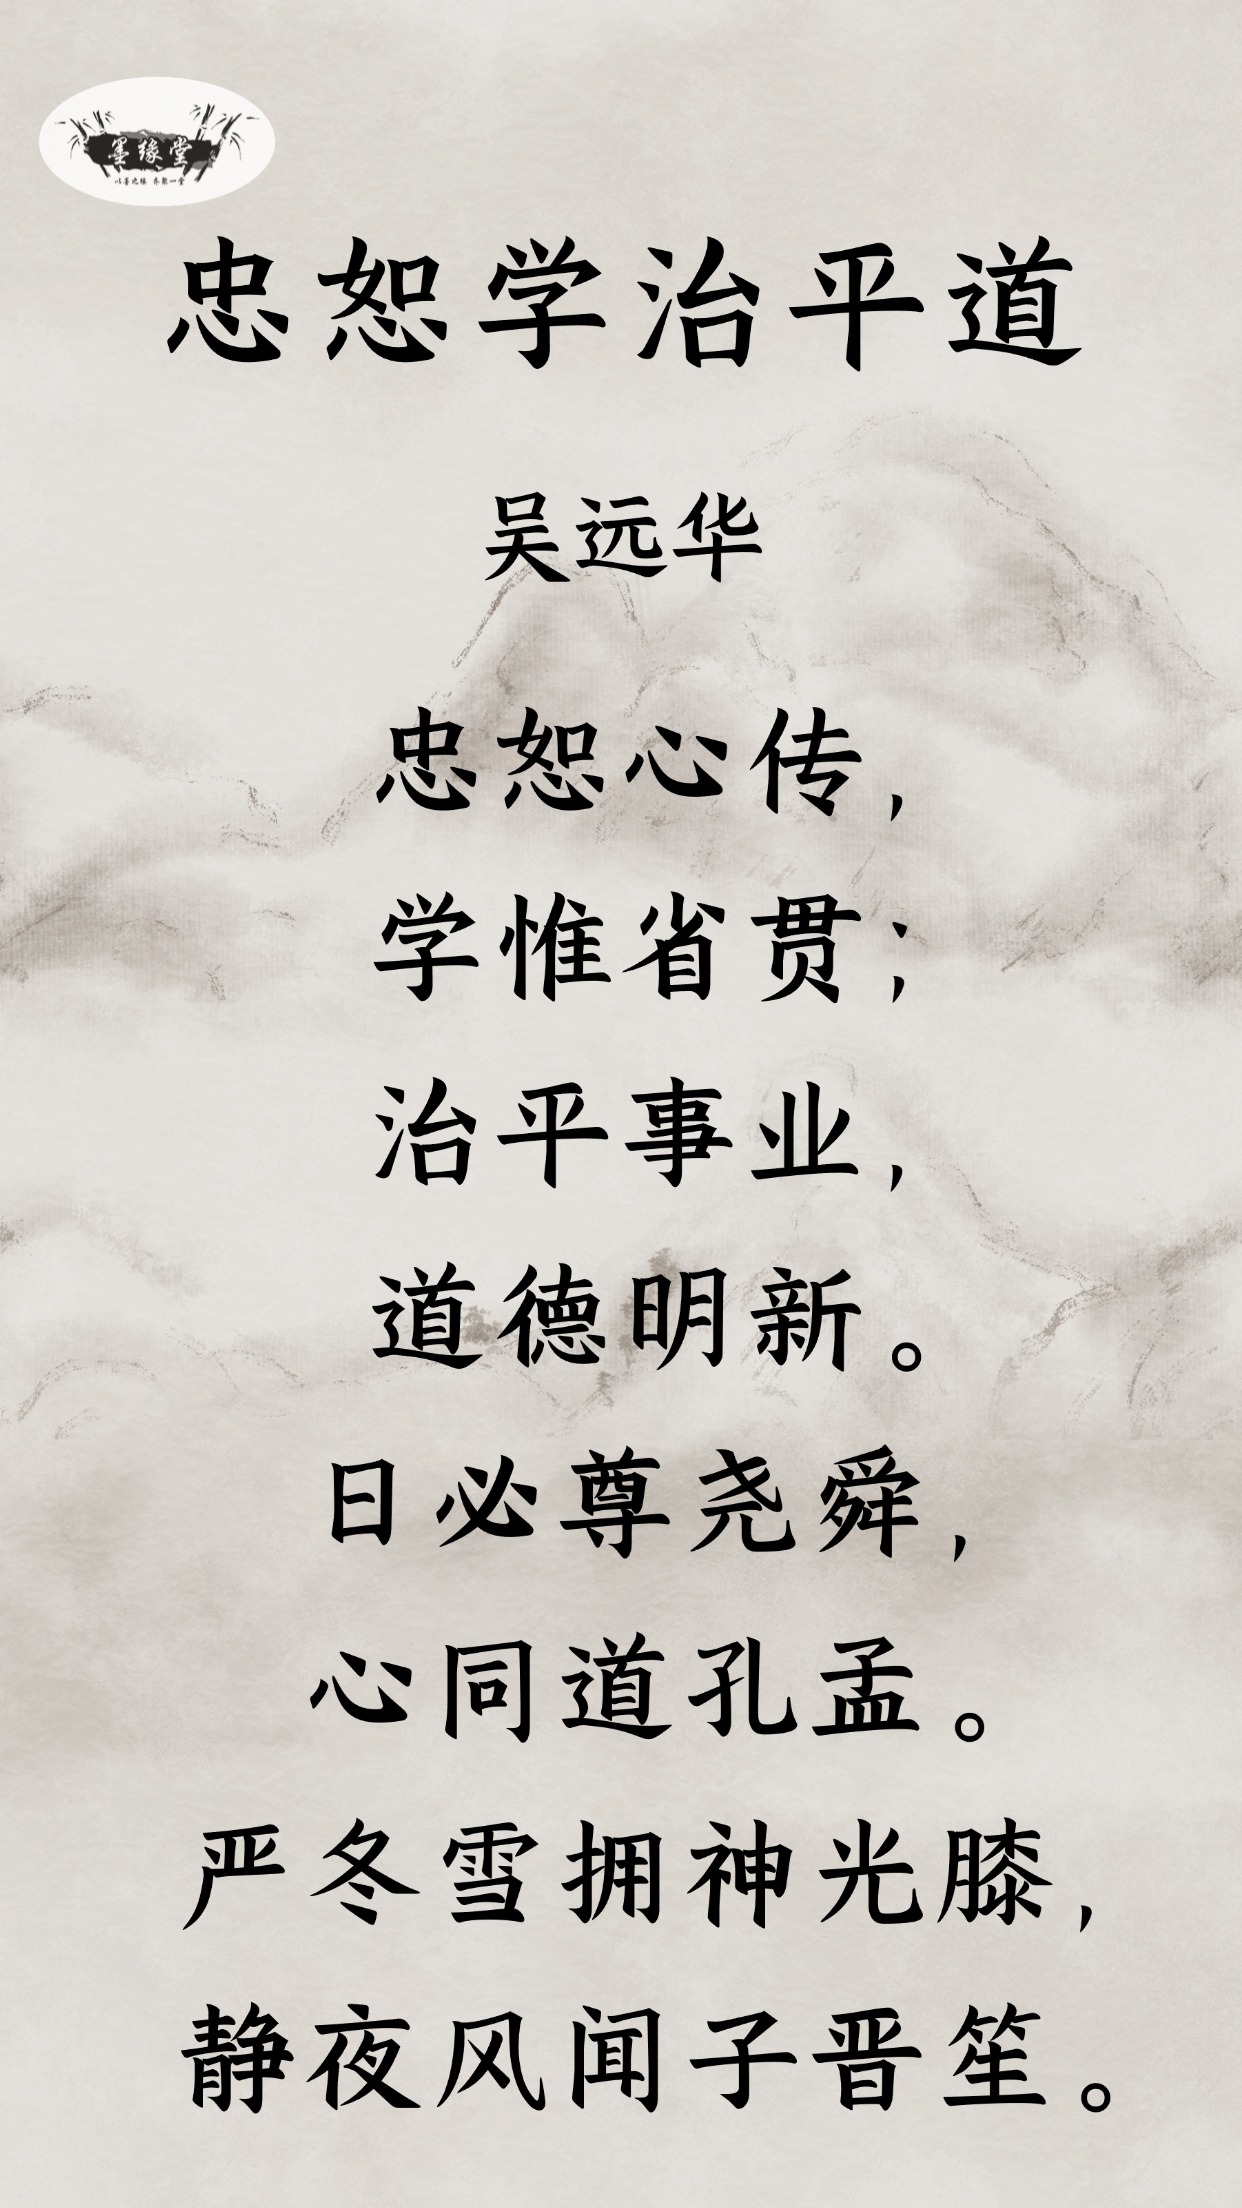 墨缘堂
以墨之缘 齐聚一堂
忠恕学治平道
吴远华
忠恕心传，
学惟省贯；
治平事业，
道德明新。
日必尊尧舜，
心同道孔孟。
严冬雪拥神光膝，
静夜风闻子晋笙。